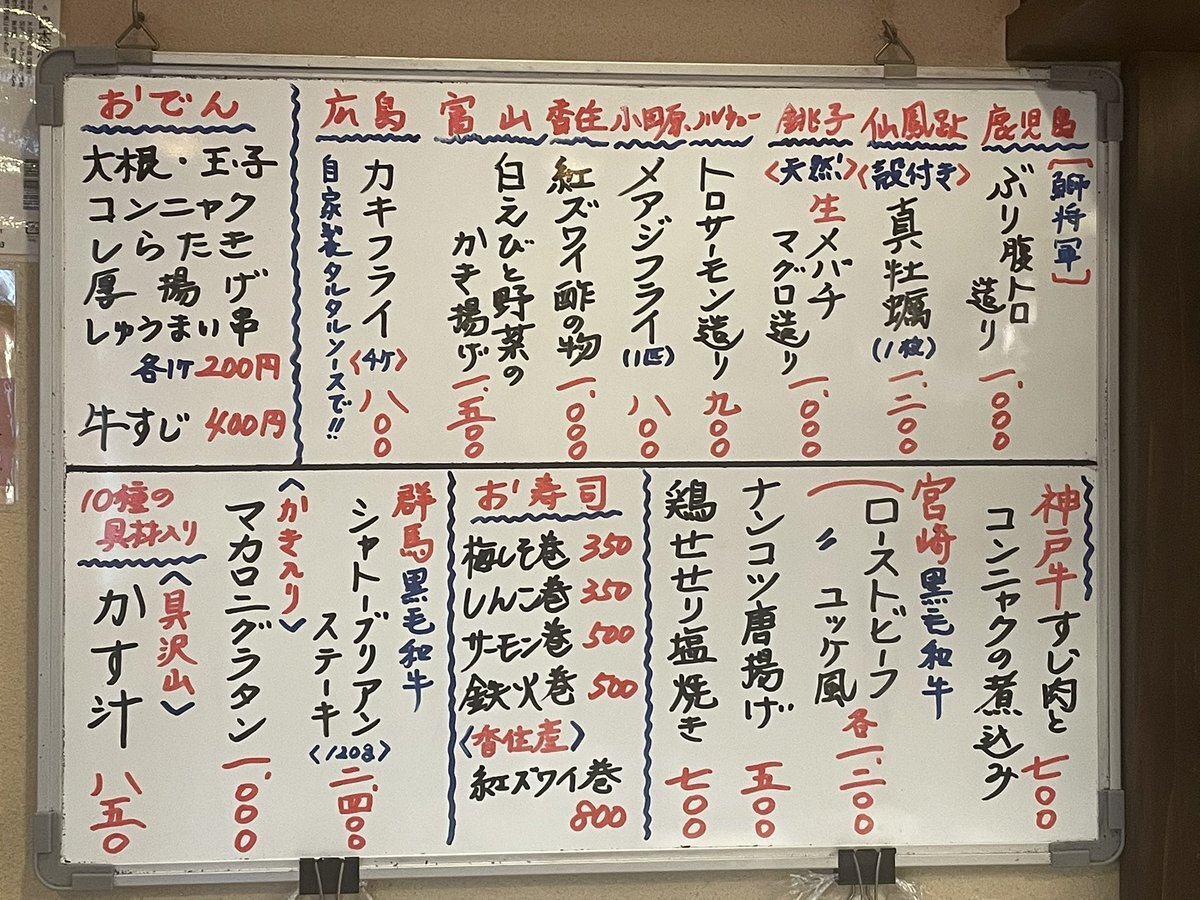 鹿児島
[鰤将軍]
ぶり腹トロ
造り
一、000
仙鳳趾
<殻付き>
真牡蠣
(1粒)
一、二00
銚子
<天然>
生メバチ
マグロ造り
一、000
ノルウェー
トロサーモン造り
九00
小田原
メアジフライ
(1匹)
八00
香住
紅ズワイ酢の物
一、000
富山
白えびと野菜の
かき揚げ
一、五00
広島
カキフライ
<4ケ>
自家製タルタルソースで!!
八00
おでん
大根・玉子
コンニャク
しらたき
厚揚げ
しゅうまい串
各1ケ 200円
牛すじ 400円
神戸牛すじ肉と
コンニャクの煮込み
七00
宮崎黒毛和牛
ローストビーフ
〃 ユッケ風
各一、二00
ナンコツ唐揚げ
五00
鶏せせり塩焼き
七00
お寿司
梅しそ巻 350
しんこ巻 350
サーモン巻 500
鉄火巻 500
<香住産>
紅ズワイ巻
800
群馬黒毛和牛
シャトーブリアン
ステーキ
<120g>
二、四00
<かき入り>
マカロニグラタン
一、000
10種の
具材入り
<具沢山>
かす汁
八五0